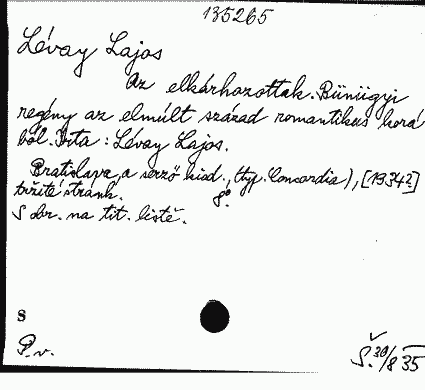 135265
Lévay Lajos
Az elkárhozottak. Bünügyi
regény az elmúlt század romantikus korá
ból. Irta: Lévay Lajos.
Bratislava, a szerző kiad., (typ. Concordia), [1934?]
stránk. 8°.
S obr. na tit. listě.
S
P.v.
Š. 30/8 35